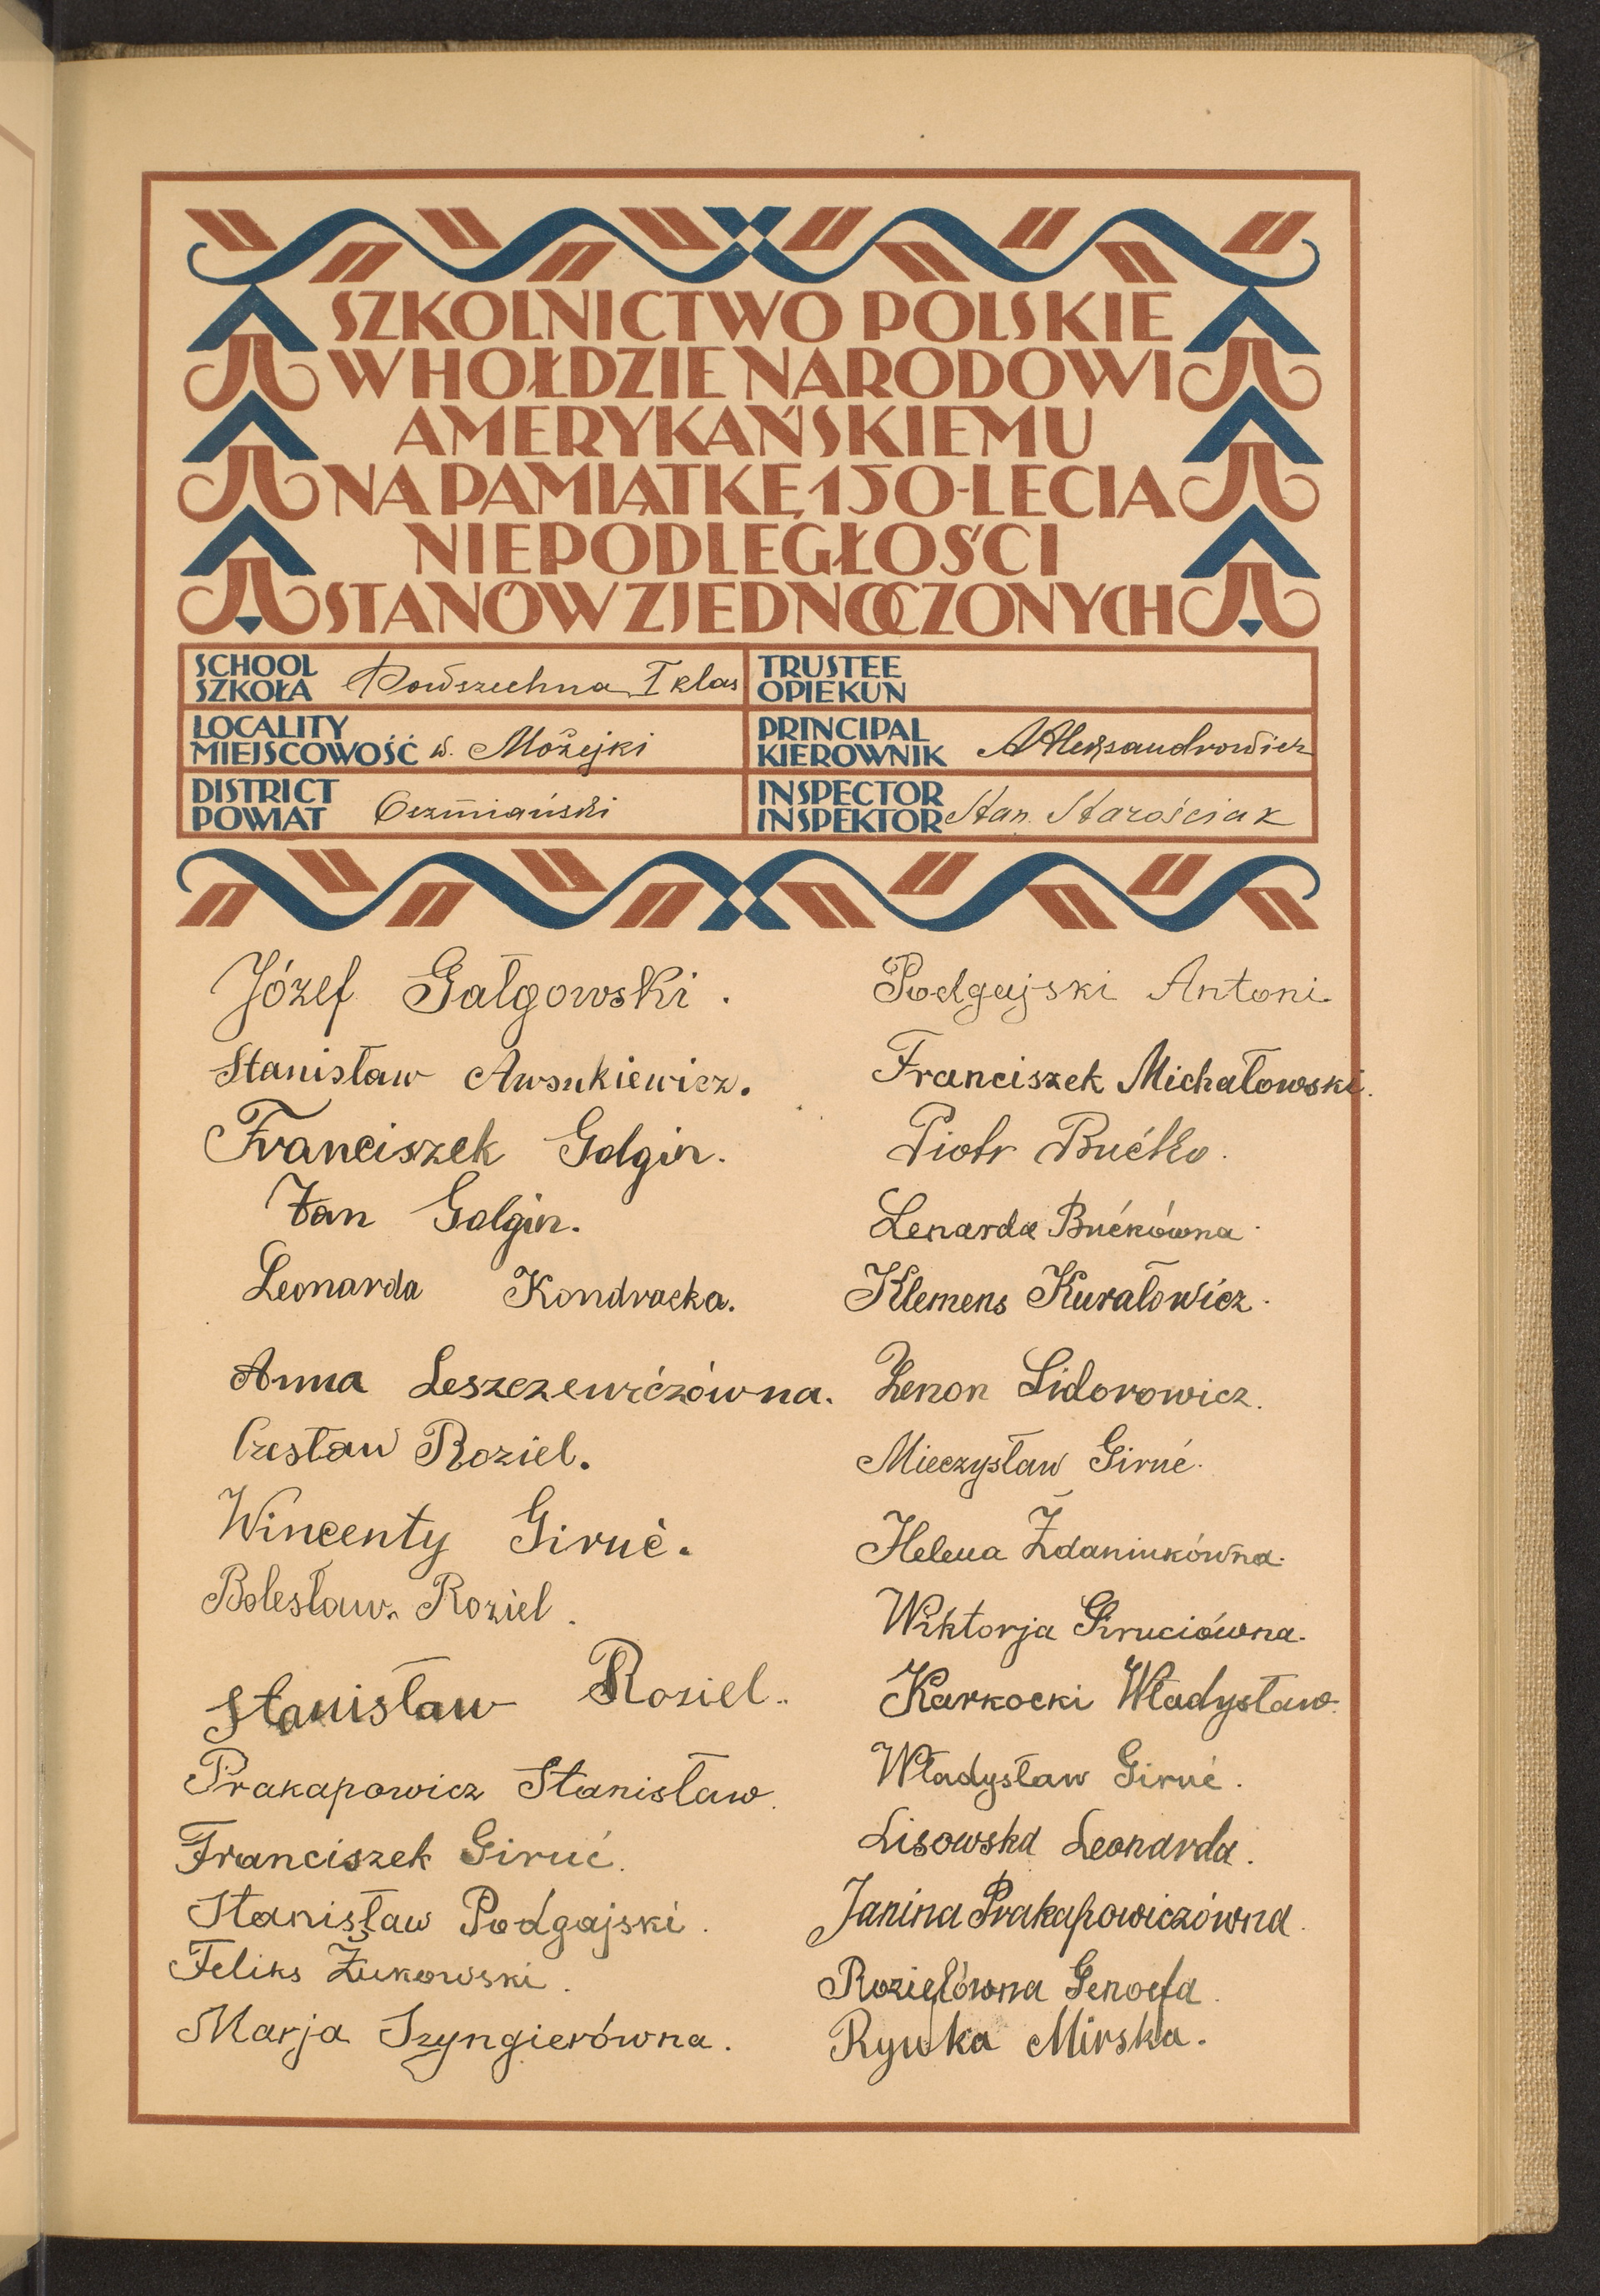 SZKOLNICTWO POLSKIE
W HOŁDZIE NARODOWI
AMERYKAŃSKIEMU
NA PAMIĄTKĘ 150-LECIA
NIEPODLEGŁOŚCI
STANÓW ZJEDNOCZONYCH
SCHOOL
SZKOŁA Powszechna I klas
TRUSTEE
OPIEKUN
LOCALITY
MIEJSCOWOŚĆ w. Możejki
PRINCIPAL
KIEROWNIK A Aleksandrowicz
DISTRICT
POWIAT Oszmiański
INSPECTOR
INSPEKTOR Stan. Starościak
Józef Gałgowski.
Stanisław Awsukiewicz.
Franciszek Golgin.
Jan Golgin.
Leonarda Kondracka.
Anna Leszczewiczówna.
Czesław Roziel.
Wincenty Giruć.
Bolesław Roziel.
Stanisław Roziel.
Prakapowicz Stanisław.
Franciszek Giruć.
Stanisław Podgajski.
Feliks Żukowski.
Marja Szyngierówna.
Podgajski Antoni.
Franciszek Michałowski.
Piotr Bućko.
Lenarda Bućkówna.
Klemens Kurałowicz.
Zenon Sidorowicz.
Mieczysław Giruć.
Helena Żdaniukówna.
Wiktorja Giruciówna.
Karkocki Władysław.
Władysław Giruć.
Lisowska Leonarda.
Janina Prakapowiczówna.
Rozielówna Genoefa.
Rywka Mirska.